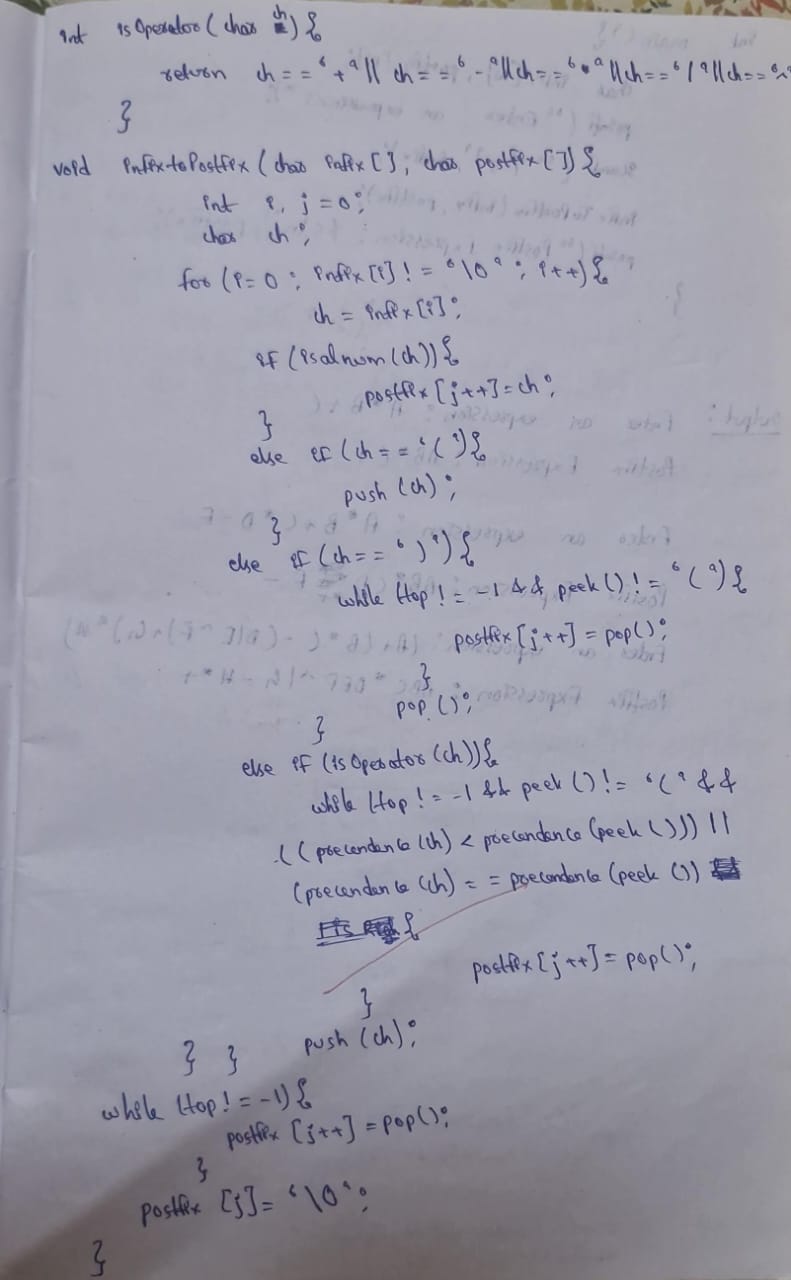 int isOperator(char ch){
return ch=='+'|| ch=='-'||ch=='*'||ch=='/'||ch=='^'
}
void infixtoPostfix(char infix[], char postfix[]){
int i, j=0;
char ch;
for(i=0; infix[i]!='\0'; i++){
ch=infix[i];
if(isalnum(ch)){
postfix[j++]=ch;
}
else if(ch=='('){
push(ch);
}
else if(ch==')'){
while(top!=-1 && peek()!='('){
postfix[j++]=pop();
}
pop();
}
else if(isOperator(ch)){
while(top!=-1 && peek()!='(' &&
((precendance(ch)<precendance(peek()))||
(precendance(ch)==precendance(peek())
{
postfix[j++]=pop();
}
push(ch);
} }
while(top!=-1){
postfix[j++]=pop();
}
postfix[j]='\0';
}